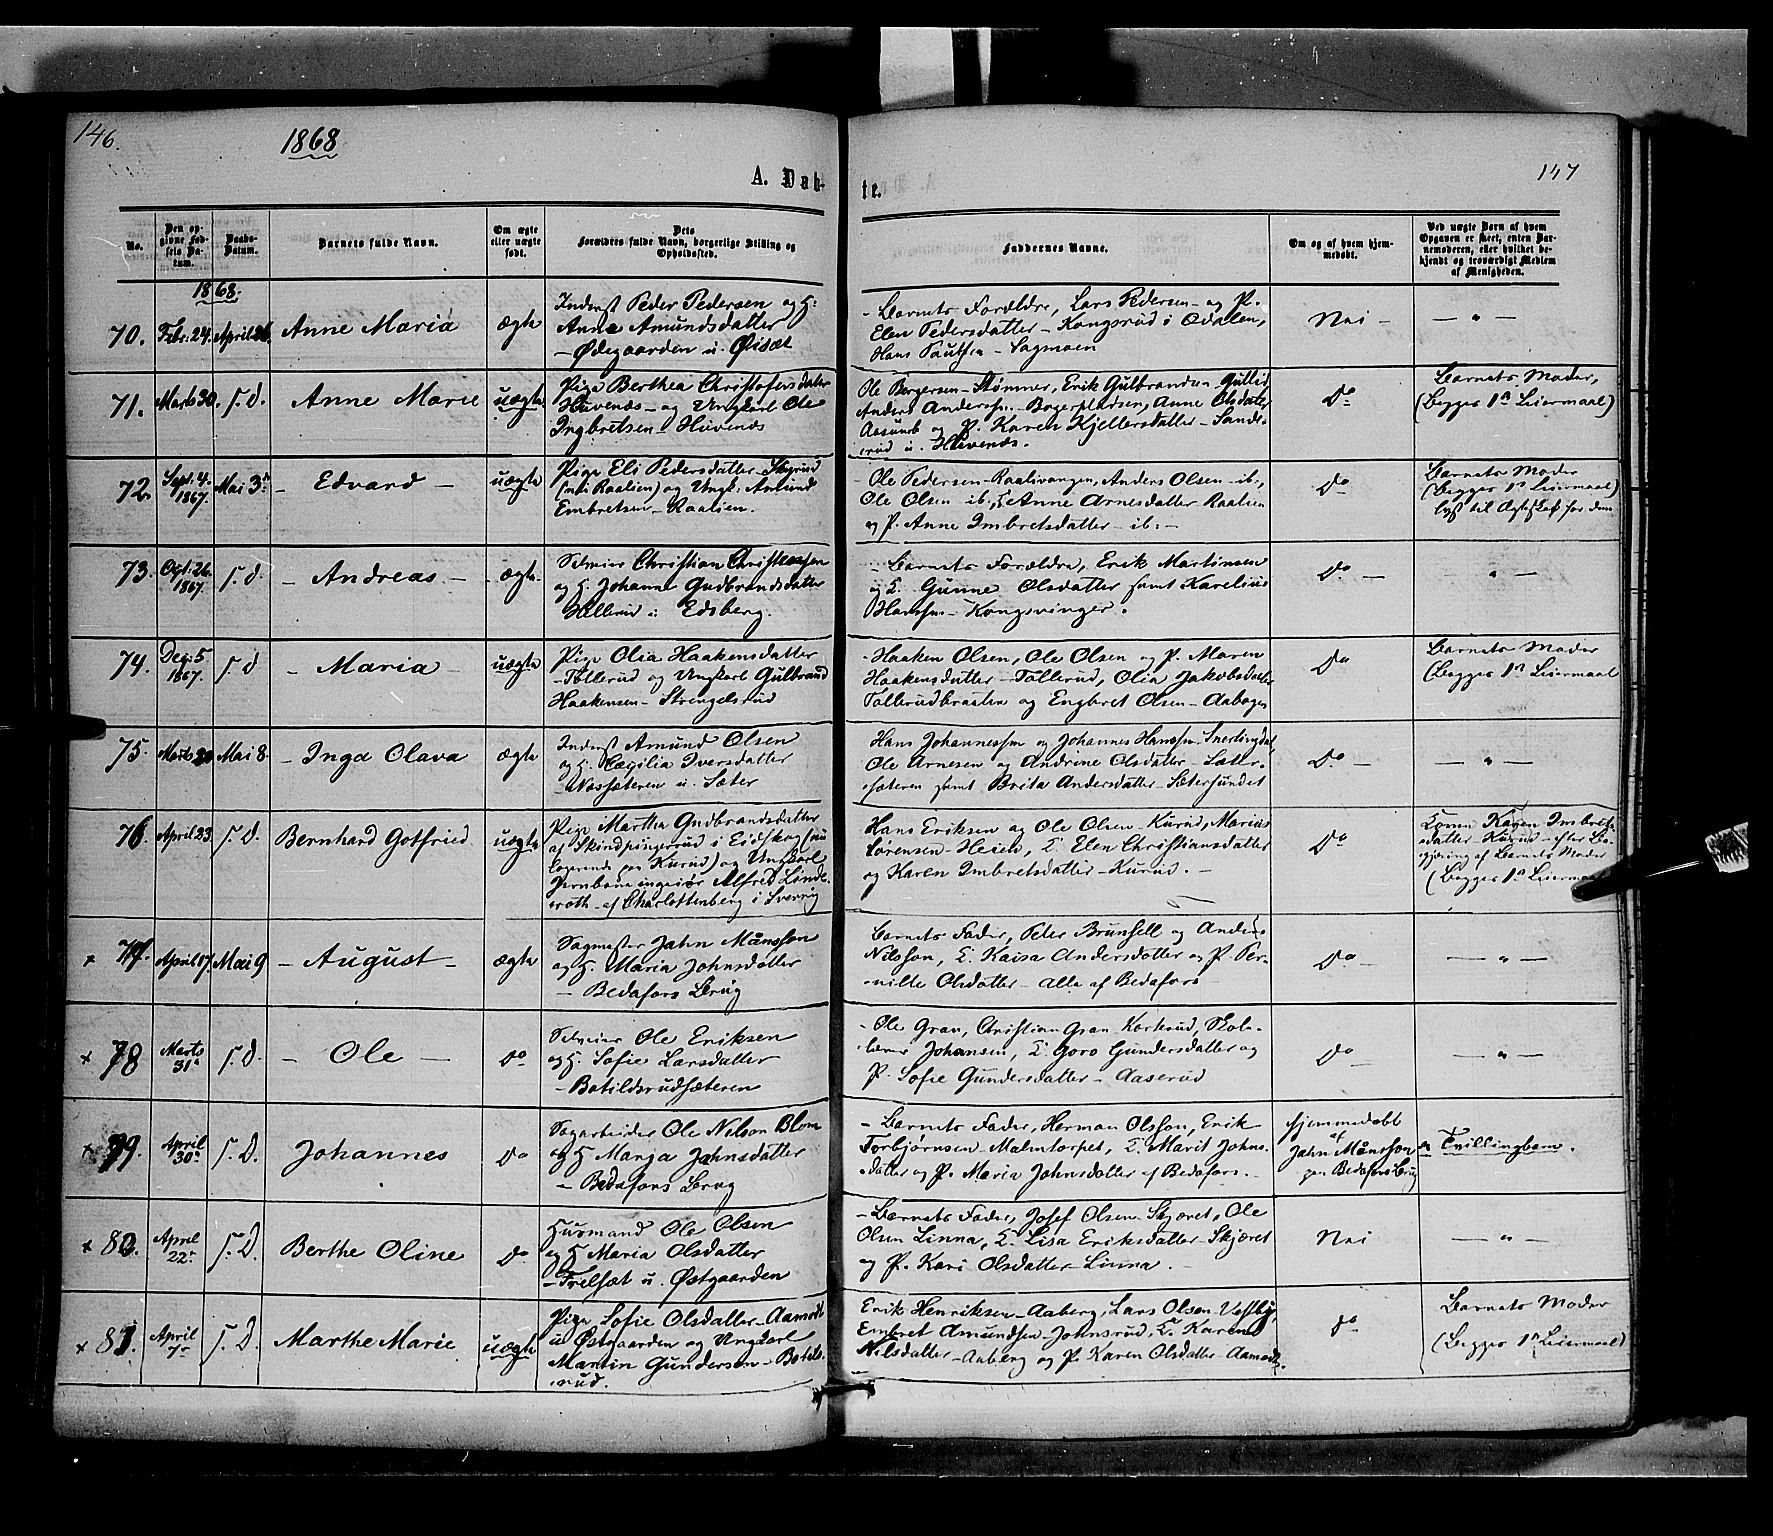 146.
1868
A. Dab-
No.
Den opgivne Fødsels Datum.
Daabs-Datum.
Barnets fulde Navn.
Om ægte eller uægte født.
Dets Forældres fulde Navn, borgerlige Stilling og Opholdssted.
1868.
70. Febr. 24. April 26. Anne Maria ægte
Inderst Peder Pedersen og H:
Anne Amundsdatter
- Ødegaarden u. Øisæt
71. Marts 30. s. d. Anne Marie uægte
Pige Berthea Christofersdatter
Huvenæs - og Ungkarl Ole
Ingbretsen - Huvenæs
72. Sept. 4. 1867. Mai 3die - Edvard - uægte
Pige Eli Pedersdatter - Skyrud
(nu i Raalien) og Ungk: Amund
Embretsen - Raalien.
73. Oct. 26. 1867. s. d. - Andreas - ægte
Selveier Christian Christiansen
og H. Johanne Gudbrandsdatter
Hellerud i Edsberg.
74. Dec. 5 1867. s. d - Maria - uægte
Pige Olia Haakensdatter
- Tollerud og Ungkarl Gulbrand
Haakensen - Strengelsrud
75. Marts 20 Mai 8. - Inga Olava ægte
Inderst Amund Olsen
og H. Cægilia Iversdatter
- Næssæteren u. Sæter
76. April 23 s. d. Bernhard Gotfried uægte
Pige Martha Gudbrandsdatter
af Skindpingerud i Eidskog (nu
logerende paa Kurud) og Ungkarl
Jernbaneingeniør Alfred Linde-
roth - af Charlottenberg i Sverrig
× 77. April 17. Mai 9 - August - ægte
Sagmester Jahn Månsson
og H. Maria Johnsdatter
- Bedafors Brug
× 78 Marts 31te s. d. - Ole - do
Selveier Ole Eriksen
og H. Sofie Larsdatter
- Botildsrudsæteren
× 79. April 30te s. D. Johannes do
Sagarbeider Ole Nilson Blom
og H Marja Jahnsdatter
- Bedafors Brug
× 80. April 22. s. D. Berthe Oline do
Husmand Ole Olsen
og H Maria Olsdatter
- Frelsæt u. Østgaarden
× 81. April 7de s. D. Marthe Marie uægte
Pige Sofie Olsdatter - Aamodt
u Østgaarden og Ungkarl
Martin Gundersen - Botils-
rud.
147
te.
Faddernes Navne.
Om og af hvem hjemmedøbt.
Ved uægte Børn af hvem Opgaven er skeet, enten Barnemoderen, eller hvilket bekjendt og troværdigt Medlem af Menigheden.
- Barnets Forældre, Lars Pedersen - og P.
Elen Pedersdatter - Kongsrud i Odalen,
Hans Paulsen - Sagmoen
Nei - — " —
Ole Børgersen - Stømner, Erik Gulbrandsen Gullid
Anders Andersen - Bogerpladsen, Anne Olsdatter
Aasund og P. Karen Kjellersdatter - Sande-
rud u. Huvenæs.
Do
Barnets Moder,
(Begges 1ste Leiermaal)
- Ole Pedersen - Raalivangen, Anders Olsen - ib.,
Ole Olsen ib., E. Anne Arnesdatter Raalien
og P. Anne Imbretsdatter - ib: -
Do
Barnets Moder
(Begges 1ste Leiermaal)
lyst til Ægteskab for dem
- Barnets Forældre, Erik Martinsen
og E. Gunne Olsdatter samt Karelius
Hansen - Kongsvinger.
Do - — " —
- Haaken Olsen, Ole Olsen og P. Maren
Haakensdatter - Tollerud, Olia Jakobsdatter
Tollerudbraaten og Engbret Olsen - Aabogen
Do
Barnets Moder
(Begges 1ste Leiermaal
Hans Johannessen og Johannes Hanssen - Snertingdal,
Ole Arnesen og Andrine Olsdatter - Sæter-
sæteren samt Brita Andersdatter - Sætersundet
Do - — " —
Hans Eriksen og Ole Olsen - Kurud, Marius
Sørensen - Heien, E. Elen Christiansdatter
og Karen Imbretsdatter - Kurud. -
Do
Kone Karen Imbrets-
datter - Kurud - efter Be-
gjæring af Barnets Moder
(Begges 1ste Leiermaal
Barnets Fader, Peter Brunsell og Anders
Nilsson, E. Kaisa Andersdatter og P. Per-
nille Olsdatter - Alle af Bedafors
Do — " —
- Ole Gran, Christian Gran Korterud, Skole-
lærer Johansen, E. Goro Gundersdatter og
P. Sofie Gundersdatter - Aaserud
Do — " —
- Barnets Fader, Herman Olsson, Erik
Torbjørnsen - Malmtorpet, E. Marit Johns-
datter og P. Maria Johnsdatter af Bedafors.
Hjemmedøbt
af
Jahn Månsson
paa Bedafors Brug
Tvillingbarn.
- Barnets Fader, Josef Olsen - Skjæret, Ole
Olsen Linna, E. Lisa Eriksdatter - Skjæret
og P. Kari Olsdatter - Linna. -
Nei — " —
Erik Henriksen - Aaberg, Lars Olsen - Vestby,
Embret Amundsen - Johnsrud, E. Karen
Nilsdatter - Aaberg og P. Karen Olsdatter - Aamodt.
do
Barnets Moder
(Begges 1ste Leiermaal)